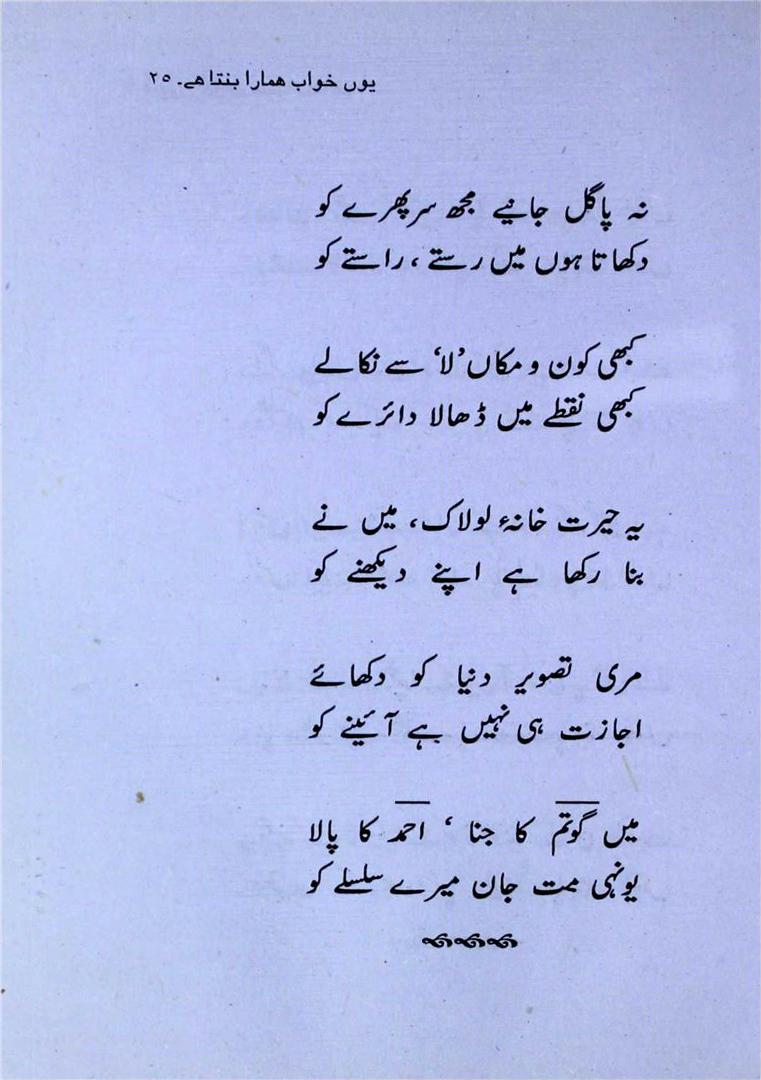 یوں خواب ھمارا بنتا ھے۔ ۲۵
نہ پاگل جانیے مجھ سرپھرے کو
دکھاتا ہوں میں رستے ، راستے کو
کبھی کون و مکاں ’لا‘ سے نکالے
کبھی نقطے میں ڈھالا دائرے کو
یہ حیرت خانۂ لولاک، میں نے
بنا رکھا ہے اپنے دیکھنے کو
مری تصویر دنیا کو دکھائے
اجازت ہی نہیں ہے آئینے کو
میں گوتم کا جنا ، احمد کا پالا
یونہی مت جان میرے سلسلے کو